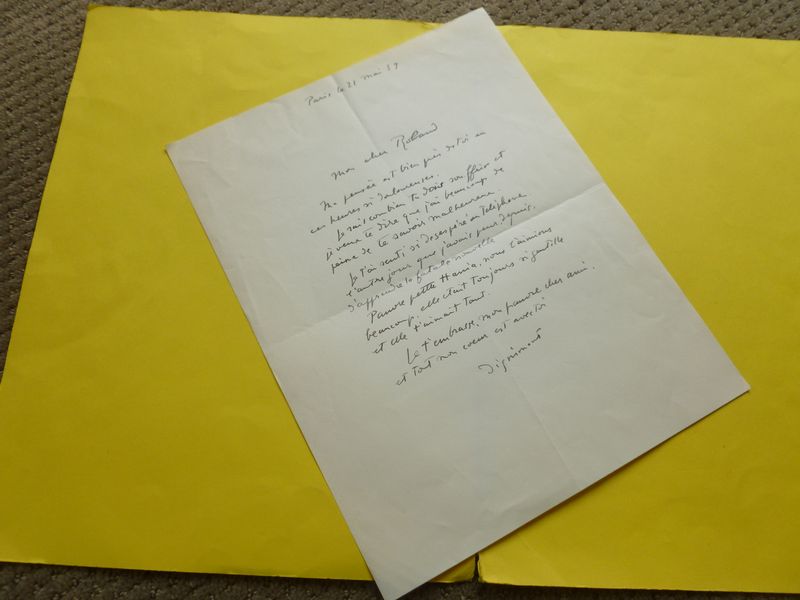 Paris le 21 mai 59
Mon cher Roland
Ma pensée est bien près de toi en
ces heures si douloureuses.
Je sais combien tu dois souffrir et
je veux te dire que j'ai beaucoup de
peine de te savoir malheureux.
Je t'ai senti si désespéré au téléphone
l'autre jour que j'avais peur depuis,
d'apprendre la fatale nouvelle
Pauvre petite Hania, nous l'aimions
beaucoup, elle était toujours si gentille
et elle t'aimait tant.
Je t'embrasse, mon pauvre cher ami,
et tout mon coeur est avec toi
Dignimont